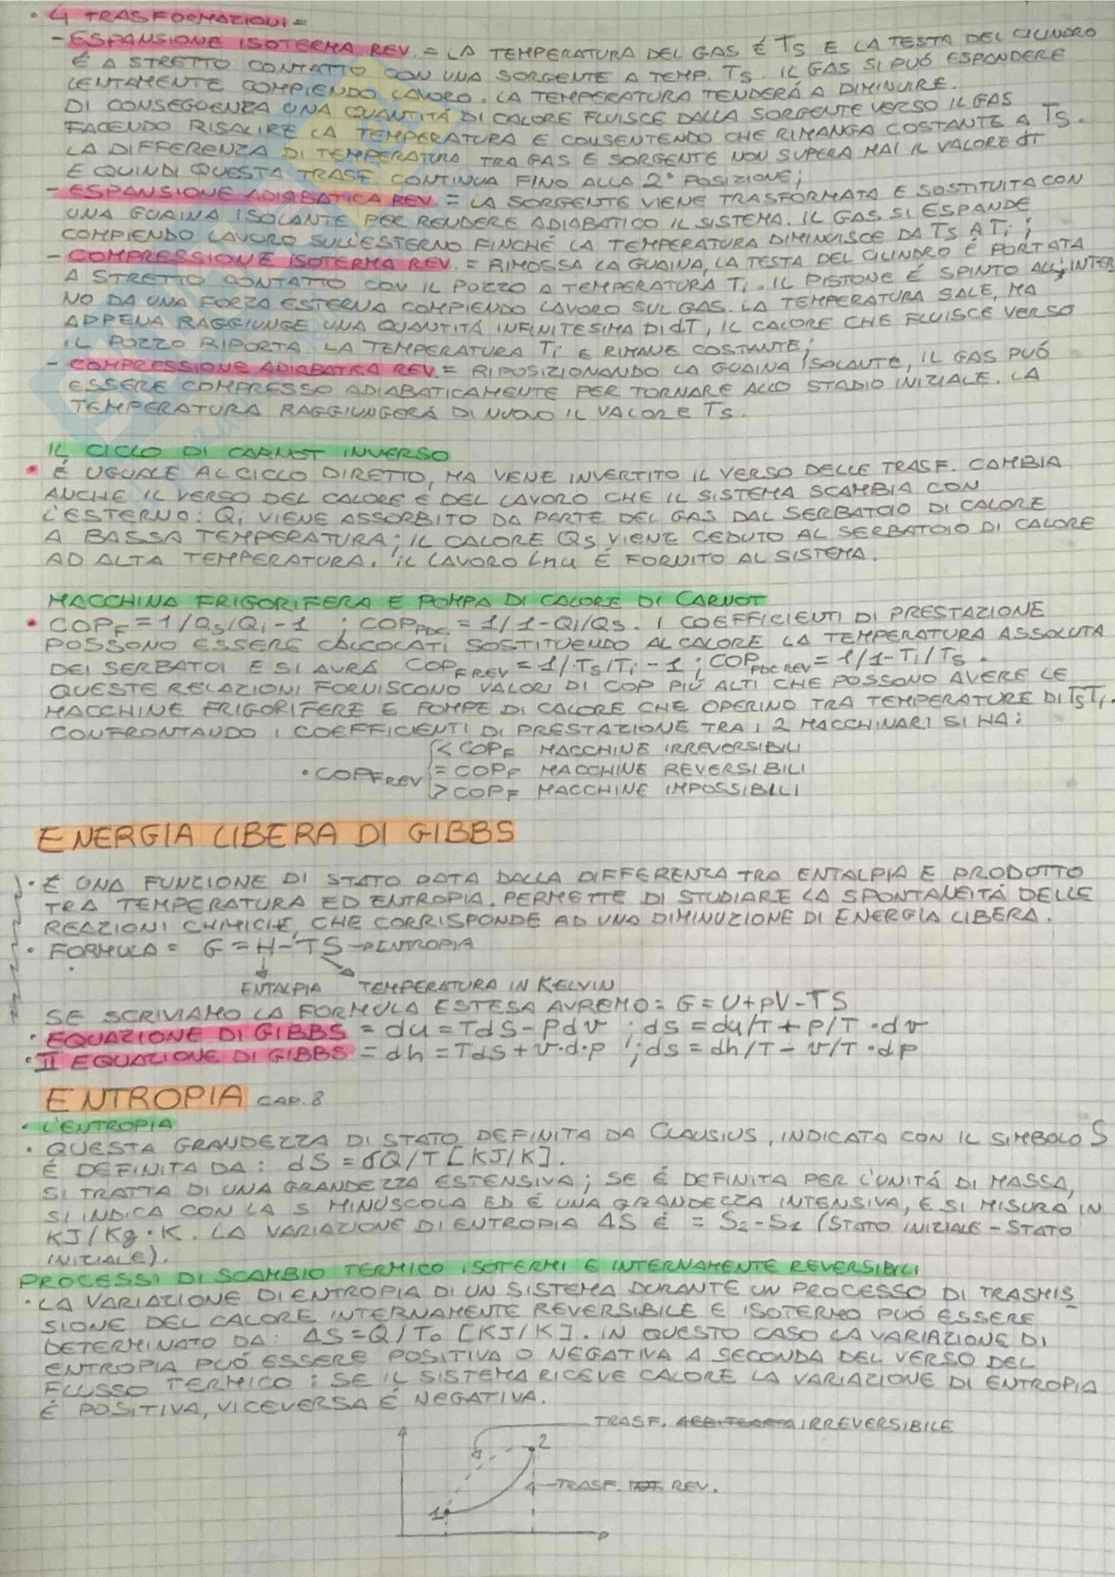 • 4 TRASFORMAZIONI =
- ESPANSIONE ISOTERMA REV. = LA TEMPERATURA DEL GAS É TS E LA TESTA DEL CILINDRO
É A STRETTO CONTATTO CON UNA SORGENTE A TEMP. TS. IL GAS SI PUÓ ESPONDERE
LENTAMENTE COMPIENDO LAVORO. LA TEMPERATURA TENDERÁ A DIMINUIRE.
DI CONSEGUENZA UNA QUANTITÁ DI CALORE FLUISCE DALLA SORGENTE VERSO IL GAS
FACENDO RISALIRE LA TEMPERATURA E CONSENTENDO CHE RIMANGA COSTANTE A TS.
LA DIFFERENZA DI TEMPERATURA TRA GAS E SORGENTE NON SUPERA MAI IL VALORE dT
E QUINDI QUESTA TRASF. CONTINUA FINO ALLA 2° POSIZIONE;
- ESPANSIONE ADIABATICA REV. = LA SORGENTE VIENE TRASFORMATA E SOSTITUITA CON
UNA GUAINA ISOLANTE PER RENDERE ADIABATICO IL SISTEMA. IL GAS SI ESPANDE
COMPIENDO LAVORO SULL'ESTERNO FINCHÉ LA TEMPERATURA DIMINUISCE DA TS A Ti;
- COMPRESSIONE ISOTERMA REV. = RIMOSSA LA GUAINA, LA TESTA DEL CILINDRO É PORTATA
A STRETTO CONTATTO CON IL POZZO A TEMPERATURA Ti. IL PISTONE É SPINTO ALL'INTER
NO DA UNA FORZA ESTERNA COMPIENDO LAVORO SUL GAS. LA TEMPERATURA SALE, MA
APPENA RAGGIUNGE UNA QUANTITÁ INFINITESIMA DI dT, IL CALORE CHE FLUISCE VERSO
IL POZZO RIPORTA LA TEMPERATURA Ti E RIMANE COSTANTE;
- COMPRESSIONE ADIABATICA REV. = RIPOSIZIONANDO LA GUAINA ISOLANTE, IL GAS PUÓ
ESSERE COMPRESSO ADIABATICAMENTE PER TORNARE ALLO STADIO INIZIALE. LA
TEMPERATURA RAGGIUNGERÁ DI NUOVO IL VALORE TS.
IL CICLO DI CARNOT INVERSO
• É UGUALE AL CICLO DIRETTO, MA VENE INVERTITO IL VERSO DELLE TRASF. CAMBIA
ANCHE IL VERSO DEL CALORE E DEL LAVORO CHE IL SISTEMA SCAMBIA CON
L'ESTERNO: Qi VIENE ASSORBITO DA PARTE DEL GAS DAL SERBATOIO DI CALORE
A BASSA TEMPERATURA; IL CALORE QS VIENE CEDUTO AL SERBATOIO DI CALORE
AD ALTA TEMPERATURA. IL LAVORO Lnu É FORNITO AL SISTEMA.
MACCHINA FRIGORIFERA E POMPA DI CALORE DI CARNOT
• COPF = 1/QS/Qi - 1 ; COPPDC = 1/1-Qi/QS. I COEFFICIENTI DI PRESTAZIONE
POSSONO ESSERE CALCOLATI SOSTITUENDO AL CALORE LA TEMPERATURA ASSOLUTA
DEI SERBATOI E SI AVRÁ COPF REV = 1/TS/Ti - 1 ; COPPDC REV = 1/1-Ti/TS.
QUESTE RELAZIONI FORNISCONO VALORI DI COP PIÚ ALTI CHE POSSONO AVERE LE
MACCHINE FRIGORIFERE E POMPE DI CALORE CHE OPERINO TRA TEMPERATURE DI TS Ti.
CONFRONTANDO I COEFFICIENTI DI PRESTAZIONE TRA I 2 MACCHINARI SI HA:
< COPF MACCHINE IRREVERSIBILI
• COPF REV = COPF MACCHINE REVERSIBILI
> COPF MACCHINE IMPOSSIBILI
ENERGIA LIBERA DI GIBBS
• É UNA FUNZIONE DI STATO DATA DALLA DIFFERENZA TRA ENTALPIA E PRODOTTO
TRA TEMPERATURA ED ENTROPIA. PERMETTE DI STUDIARE LA SPONTANEITÁ DELLE
REAZIONI CHIMICHE, CHE CORRISPONDE AD UNA DIMINUZIONE DI ENERGIA LIBERA.
• FORMULA = G = H - TS → ENTROPIA
ENTALPIA TEMPERATURA IN KELVIN
SE SCRIVIAMO LA FORMULA ESTESA AVREMO: G = U + pV - TS
• EQUAZIONE DI GIBBS = du = TdS - Pdv ; ds = du/T + P/T · dv
• II EQUAZIONE DI GIBBS = dh = TdS + v·d·p ; ds = dh/T - v/T · dp
ENTROPIA CAP. 8
• L'ENTROPIA
• QUESTA GRANDEZZA DI STATO DEFINITA DA CLAUSIUS, INDICATA CON IL SIMBOLO S
É DEFINITA DA: dS = δQ/T [KJ/K].
SI TRATTA DI UNA GRANDEZZA ESTENSIVA; SE É DEFINITA PER L'UNITÁ DI MASSA,
SI INDICA CON LA S MINUSCOLA ED É UNA GRANDEZZA INTENSIVA, E SI MISURA IN
KJ/Kg·K. LA VARIAZIONE DI ENTROPIA ΔS É = S2 - S1 (STATO INIZIALE - STATO
INIZIALE).
PROCESSI DI SCAMBIO TERMICO ISOTERMI E INTERNAMENTE REVERSIBILI
• LA VARIAZIONE DI ENTROPIA DI UN SISTEMA DURANTE UN PROCESSO DI TRASMIS_
SIONE DEL CALORE INTERNAMENTE REVERSIBILE E ISOTERMO PUÓ ESSERE
DETERMINATO DA: ΔS = Q/T0 [KJ/K]. IN QUESTO CASO LA VARIAZIONE DI
ENTROPIA PUÓ ESSERE POSITIVA O NEGATIVA A SECONDA DEL VERSO DEL
FLUSSO TERMICO: SE IL SISTEMA RICEVE CALORE LA VARIAZIONE DI ENTROPIA
É POSITIVA, VICEVERSA É NEGATIVA.
TRASF. IRREVERSIBILE
2
TRASF. REV.
1